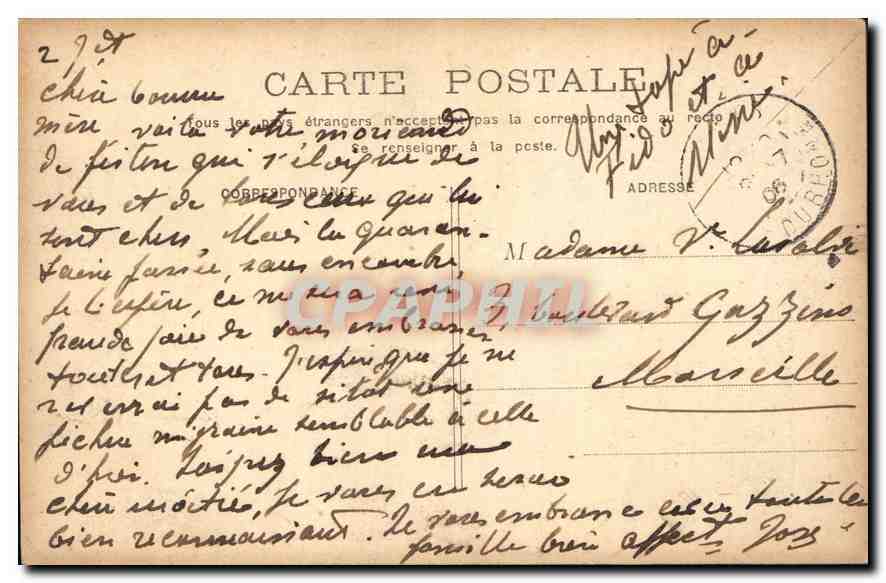 2 Jet
CARTE POSTALE
Tous les pays étrangers n'acceptent pas la correspondance au recto
Se renseigner à la poste.
CORRESPONDANCE
ADRESSE
chère bonne
mère voilà votre morceau
de fiston qui s'éloigne de
vous et de tous ceux qui lui
sont chers, Mais la quaran-
taine passée, sans encombre,
je l'espère, ce me sera une
grande joie de vous embrasser
toutes et tous. J'espère que je ne
reverrai pas de sitôt une
fichue migraine semblable à celle
d'hier. Soignez bien ma
chère moitié, je vous en serai
bien reconnaissant. Je vous embrasse ainsi toute la
famille bien affect José
Une à
Fido et à
Mimi.
Madame Vve
7, boulevard Gazzino
Marseille
CPAPHIL